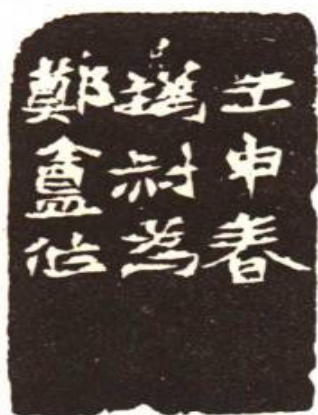 壬申春
撝叔為
鄭盦作